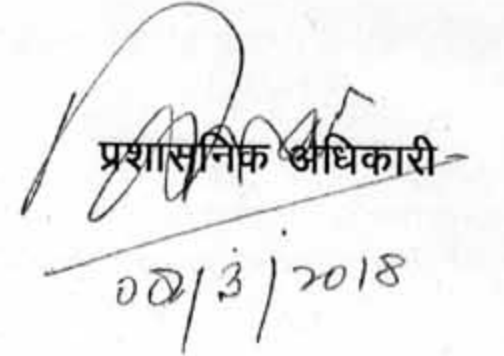 प्रशासनिक अधिकारी
08/3/2018